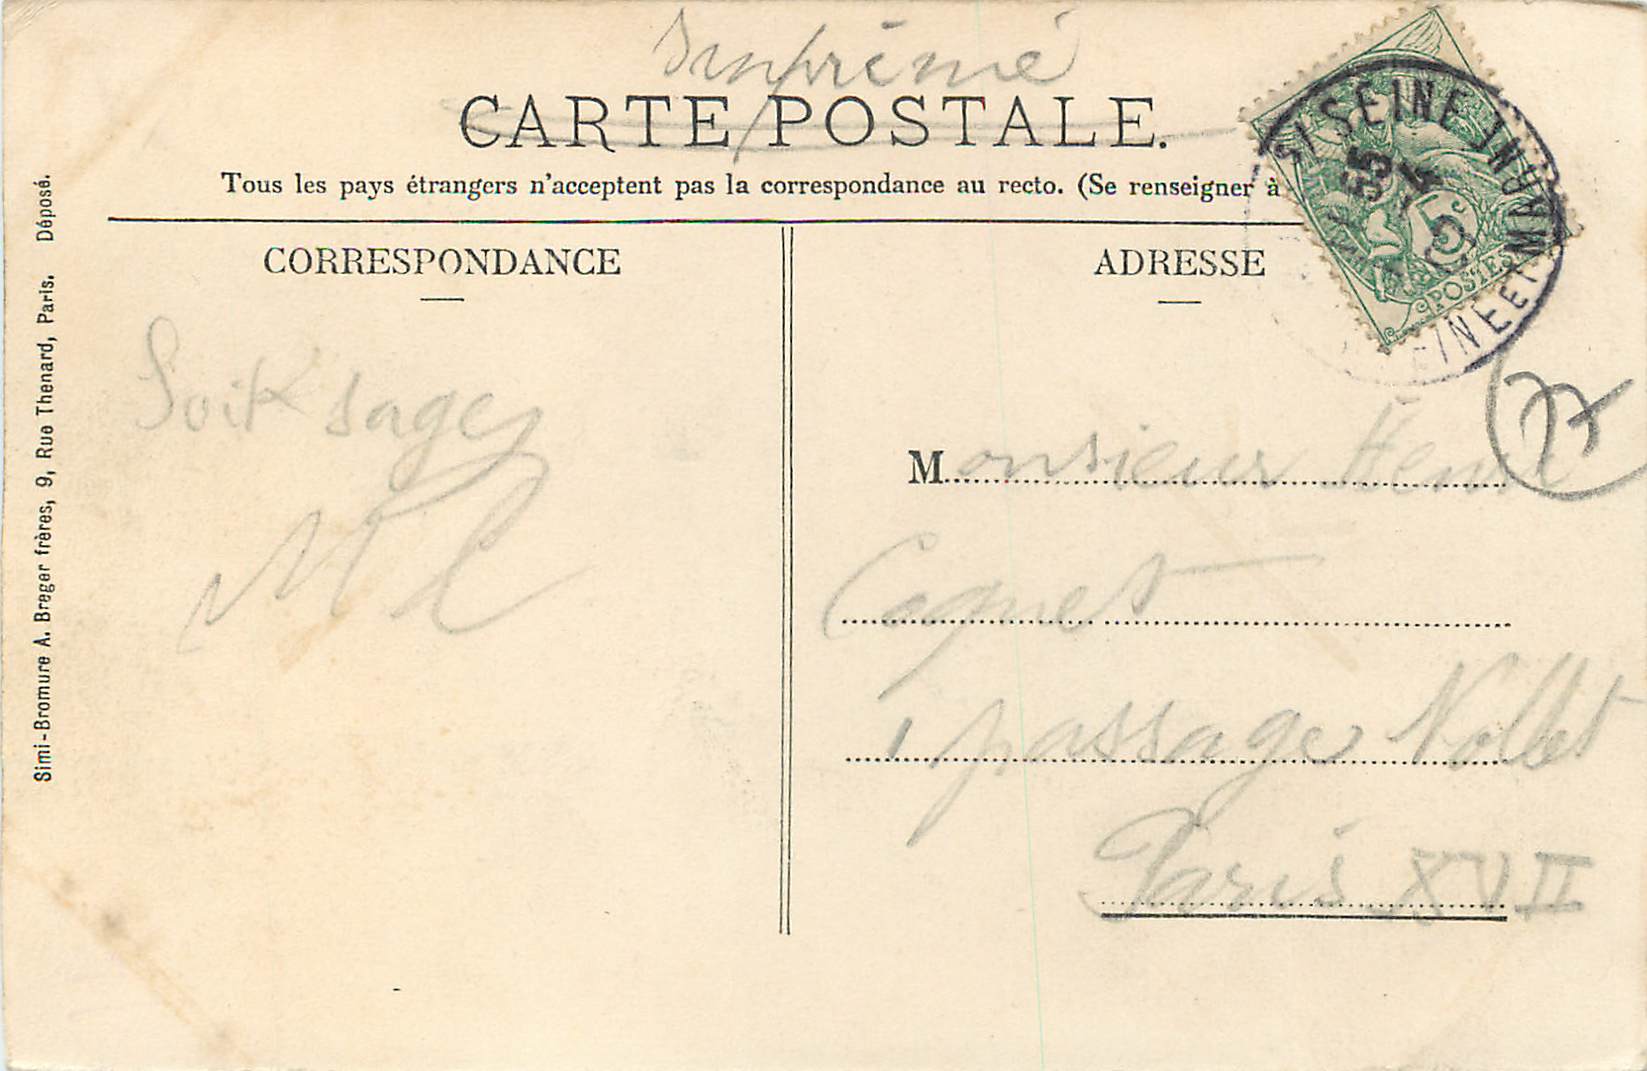 Imprimé
CARTE POSTALE.
Tous les pays étrangers n'acceptent pas la correspondance au recto. (Se renseigner à
CORRESPONDANCE
Soit sage
M C
ADRESSE
Monsieur Henri
Coquet
1 passage Nollet
Paris XVII
5c
POSTES
Simi-Bromure A. Breger frères, 9, Rue Thenard, Paris. Déposé.